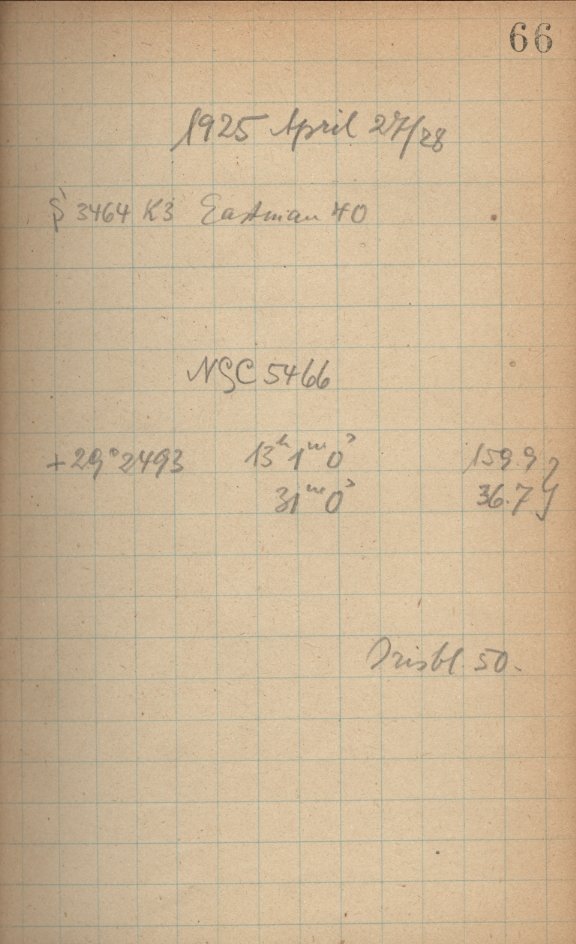 66
1925 April 27/28
3464 K3 Eastman 40
NGC 5466
+29°2493 13ʰ 1ᵐ 0ˢ 159.9
31ᵐ 0ˢ 36.7
Irisbl. 50.